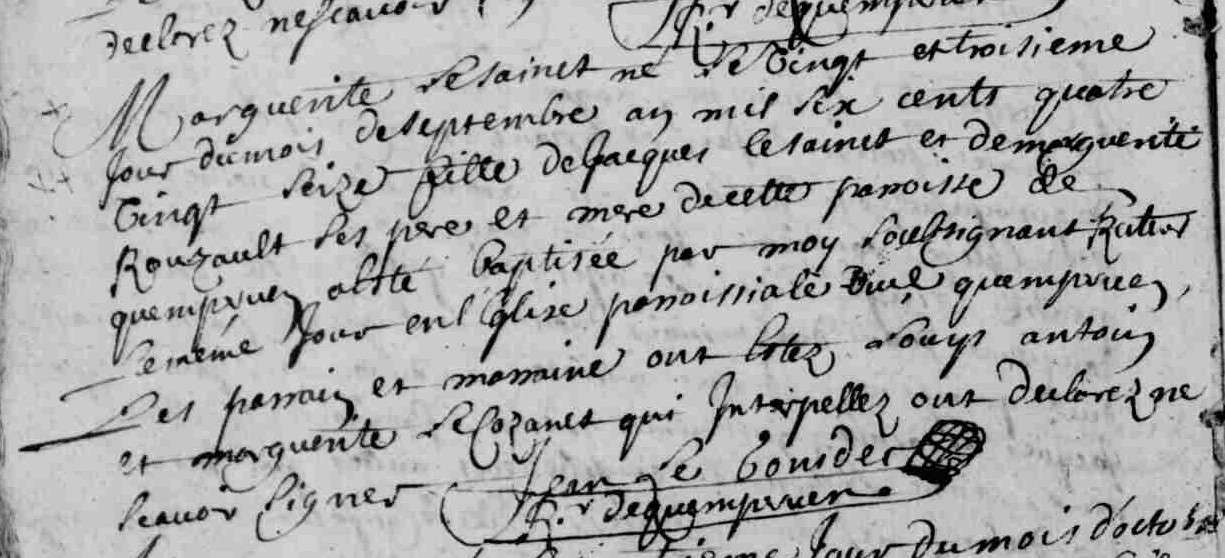 declarez ne scavoir
R.r de quemperven
Marguerite le sainct né le vingt et troisieme
Jour du mois de septembre an mil six cents quatre
vingt seize fille de Jacques le sainct et de marguerite
Rouzault ses pere et mere de cette parroisse de
quemperven a esté baptisée par moy soubsignant Recteur
le méme Jour en l'Eglise parroissiale dud quemperven,
Les parrain et marraine ont estez Louys antoin
et marguerite le Cozanet qui Interpellez ont declarez ne
scavoir signer Jean le bourdec
R.r de quemperven
Jour du mois d'octobre